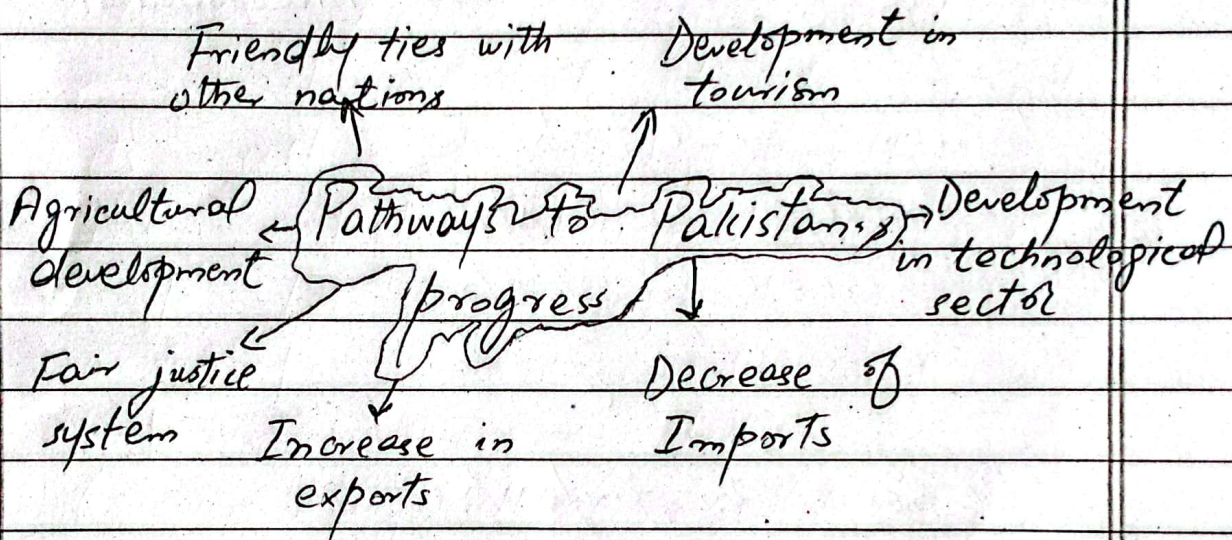 Friendly ties with
other nations
Development in
tourism
Agricultural
development
Pathways to Pakistan's
progress
Development
in technological
sector
Fair justice
system
Increase in
exports
Decrease of
Imports